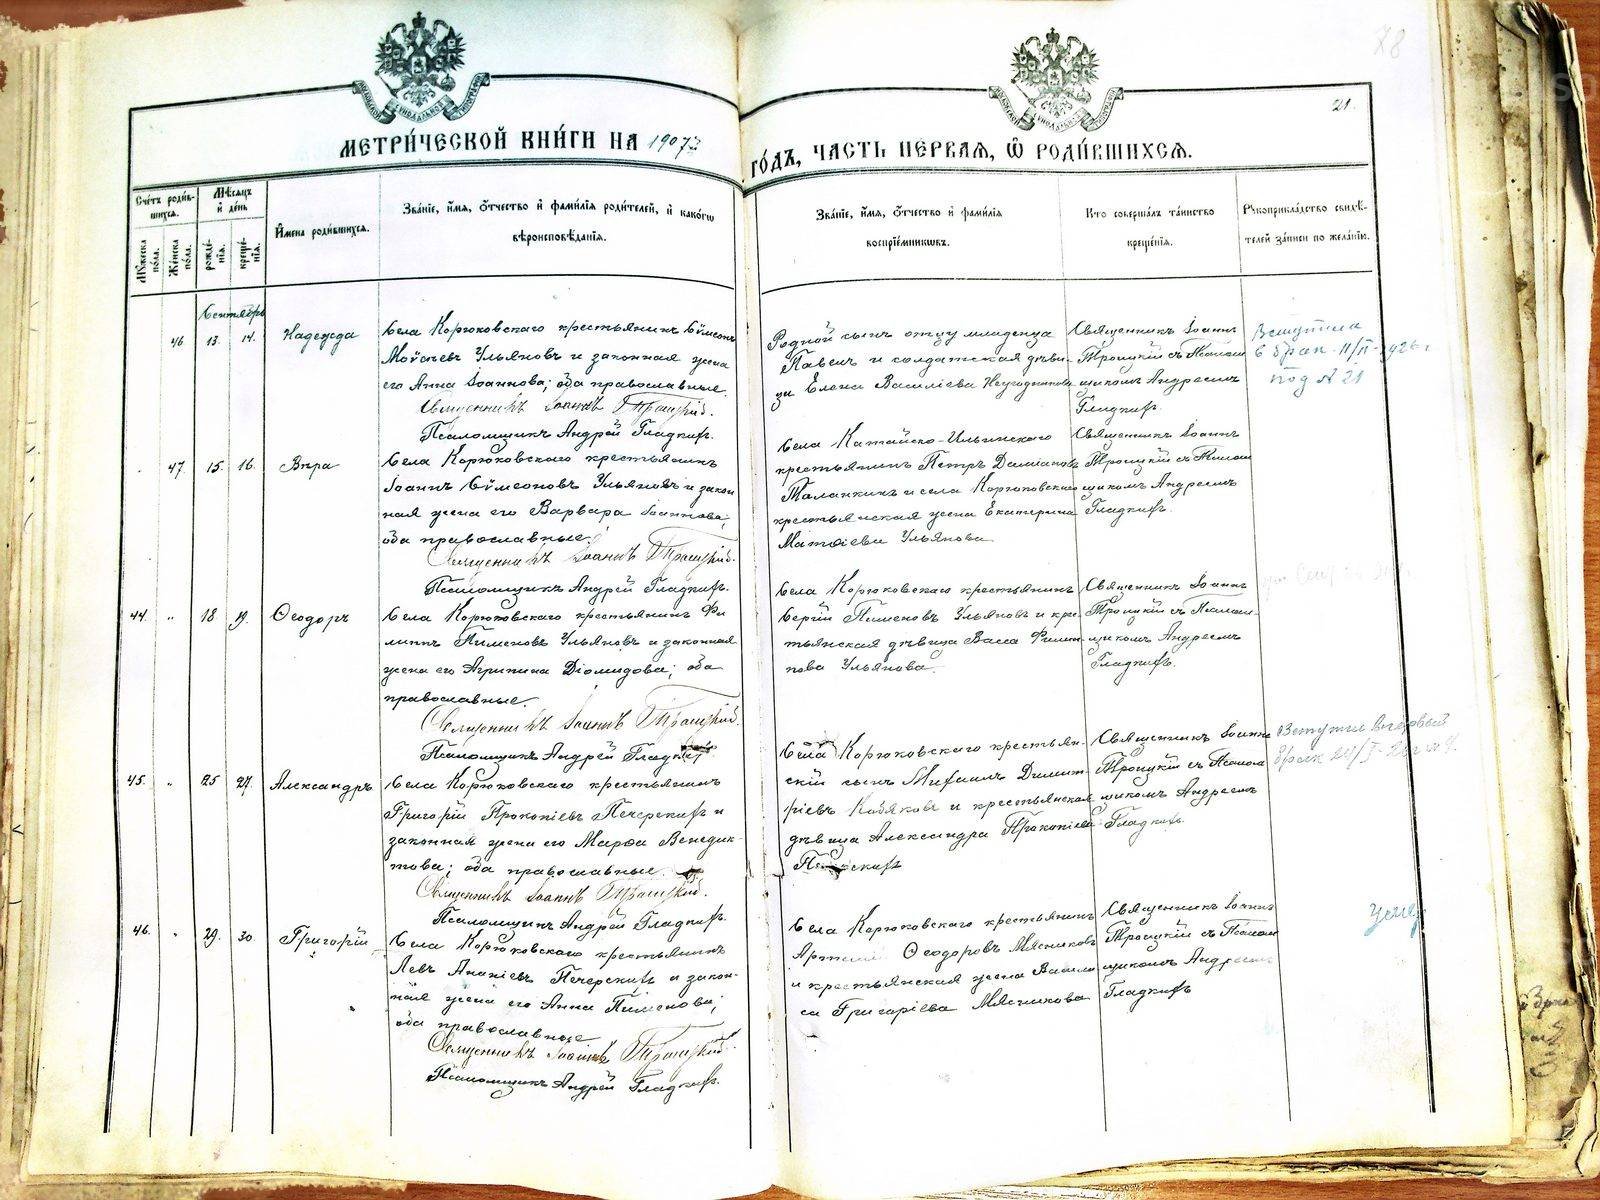 21.
МЕТРИ́ЧЕСКОЙ КНИ́ГИ НА 1907
ГО́ДЪ, ЧАСТЬ ПЕРВАЯ, Ѽ РОДИ́ВШИХСЯ.
Сче́тъ роди́в-
шихся.
Мꙋ́жеска по́ла.
Же́нска по́ла.
Мѣ́сяцъ
и҆ де́нь
рожде́-
нїя.
креще́-
нїя.
И҆мена роди́вшихся.
Зва́нїе, и҆́мя, ѻ҆́тчество и҆ фами́лїя роди́телей, и҆ како́гѡ
вѣроисповѣ́данїя.
Зва́нїе, и҆́мя, ѻ҆́тчество и҆ фами́лїя
воспрїе́мникѡвъ.
Кто̀ соверша́лъ та́инство
креще́нїя.
Рꙋкоприкла́дство свидѣ́-
телей за́писи по жела́нїю.
Сентябрь
46 13. 14. Надежда
Села Корюковскаго крестьянинъ Сѵмеонъ
Моѵсеевъ Ульяновъ и законная жена
его Анна Іоаннова; оба православные.
Священникъ Іоаннъ Троицкій.
Псаломщикъ Андрей Гладкихъ.
Родной сынъ отцу младенца
Павелъ и солдатская дѣви-
ца Елена Василіева
Священникъ Іоаннъ
Троицкій съ Псалом
щикомъ Андреемъ
Гладкихъ.
Вступила
в брак 11/II-1926 г
под № 21
47. 15. 16. Вѣра
Села Корюковскаго крестьянинъ
Іоаннъ Сѵмеоновъ Ульяновъ и закон
ная жена его Варвара Іоаннова;
оба православные.
Священникъ Іоаннъ Троицкій.
Псаломщикъ Андрей Гладкихъ.
Села Катайско-Ильинскаго
крестьянинъ Петръ Даміановъ
Таланкинъ и села Корюковскаго
крестьянская жена Екатерина
Матѳіева Ульянова
Священникъ Іоаннъ
Троицкій съ Псалом
щикомъ Андреемъ
Гладкихъ.
44. " 18 19. Ѳеодоръ
Села Корюковскаго крестьянинъ Фи-
липпъ Пименовъ Ульяновъ и законная
жена его Агрипина Діомидова; оба
православные.
Священникъ Іоаннъ Троицкій.
Псаломщикъ Андрей Гладкихъ
Села Корюковскаго крестьянинъ
Сергій Пименовъ Ульяновъ и кре-
стьянская дѣвица Васса Филип-
пова Ульянова.
Священникъ Іоаннъ
Троицкій съ Псалом-
щикомъ Андреемъ
Гладкихъ.
45. " 25 27. Александръ
Села Корюковскаго крестьянинъ
Григорій Прокопіевъ Печерскихъ и
законная жена его Марѳа Венедик-
това; оба православные.
Священникъ Іоаннъ Троицкій.
Псаломщикъ Андрей Гладкихъ.
Села Корюковскаго крестьян-
скій сынъ Михаилъ Димит-
ріевъ Кобяковъ и крестьянская
дѣвица Александра Прокопіева
Священникъ Іоаннъ
Троицкій съ Псалом
щикомъ Андреемъ
Гладкихъ.
Вступил
46. " 29. 30. Григорій
Села Корюковскаго крестьянинъ
Левъ Ананіевъ Печерскихъ и закон-
ная жена его Анна Пименова;
оба православные
Священникъ Іоаннъ Троицкій.
Псаломщикъ Андрей Гладкихъ.
Села Корюковскаго крестьянинъ
Ѳеодоровъ Мясниковъ
и крестьянская жена Васили
са Григоріева Мясникова
Священникъ Іоаннъ
Троицкій съ Псалом
щикомъ Андреемъ
Гладкихъ